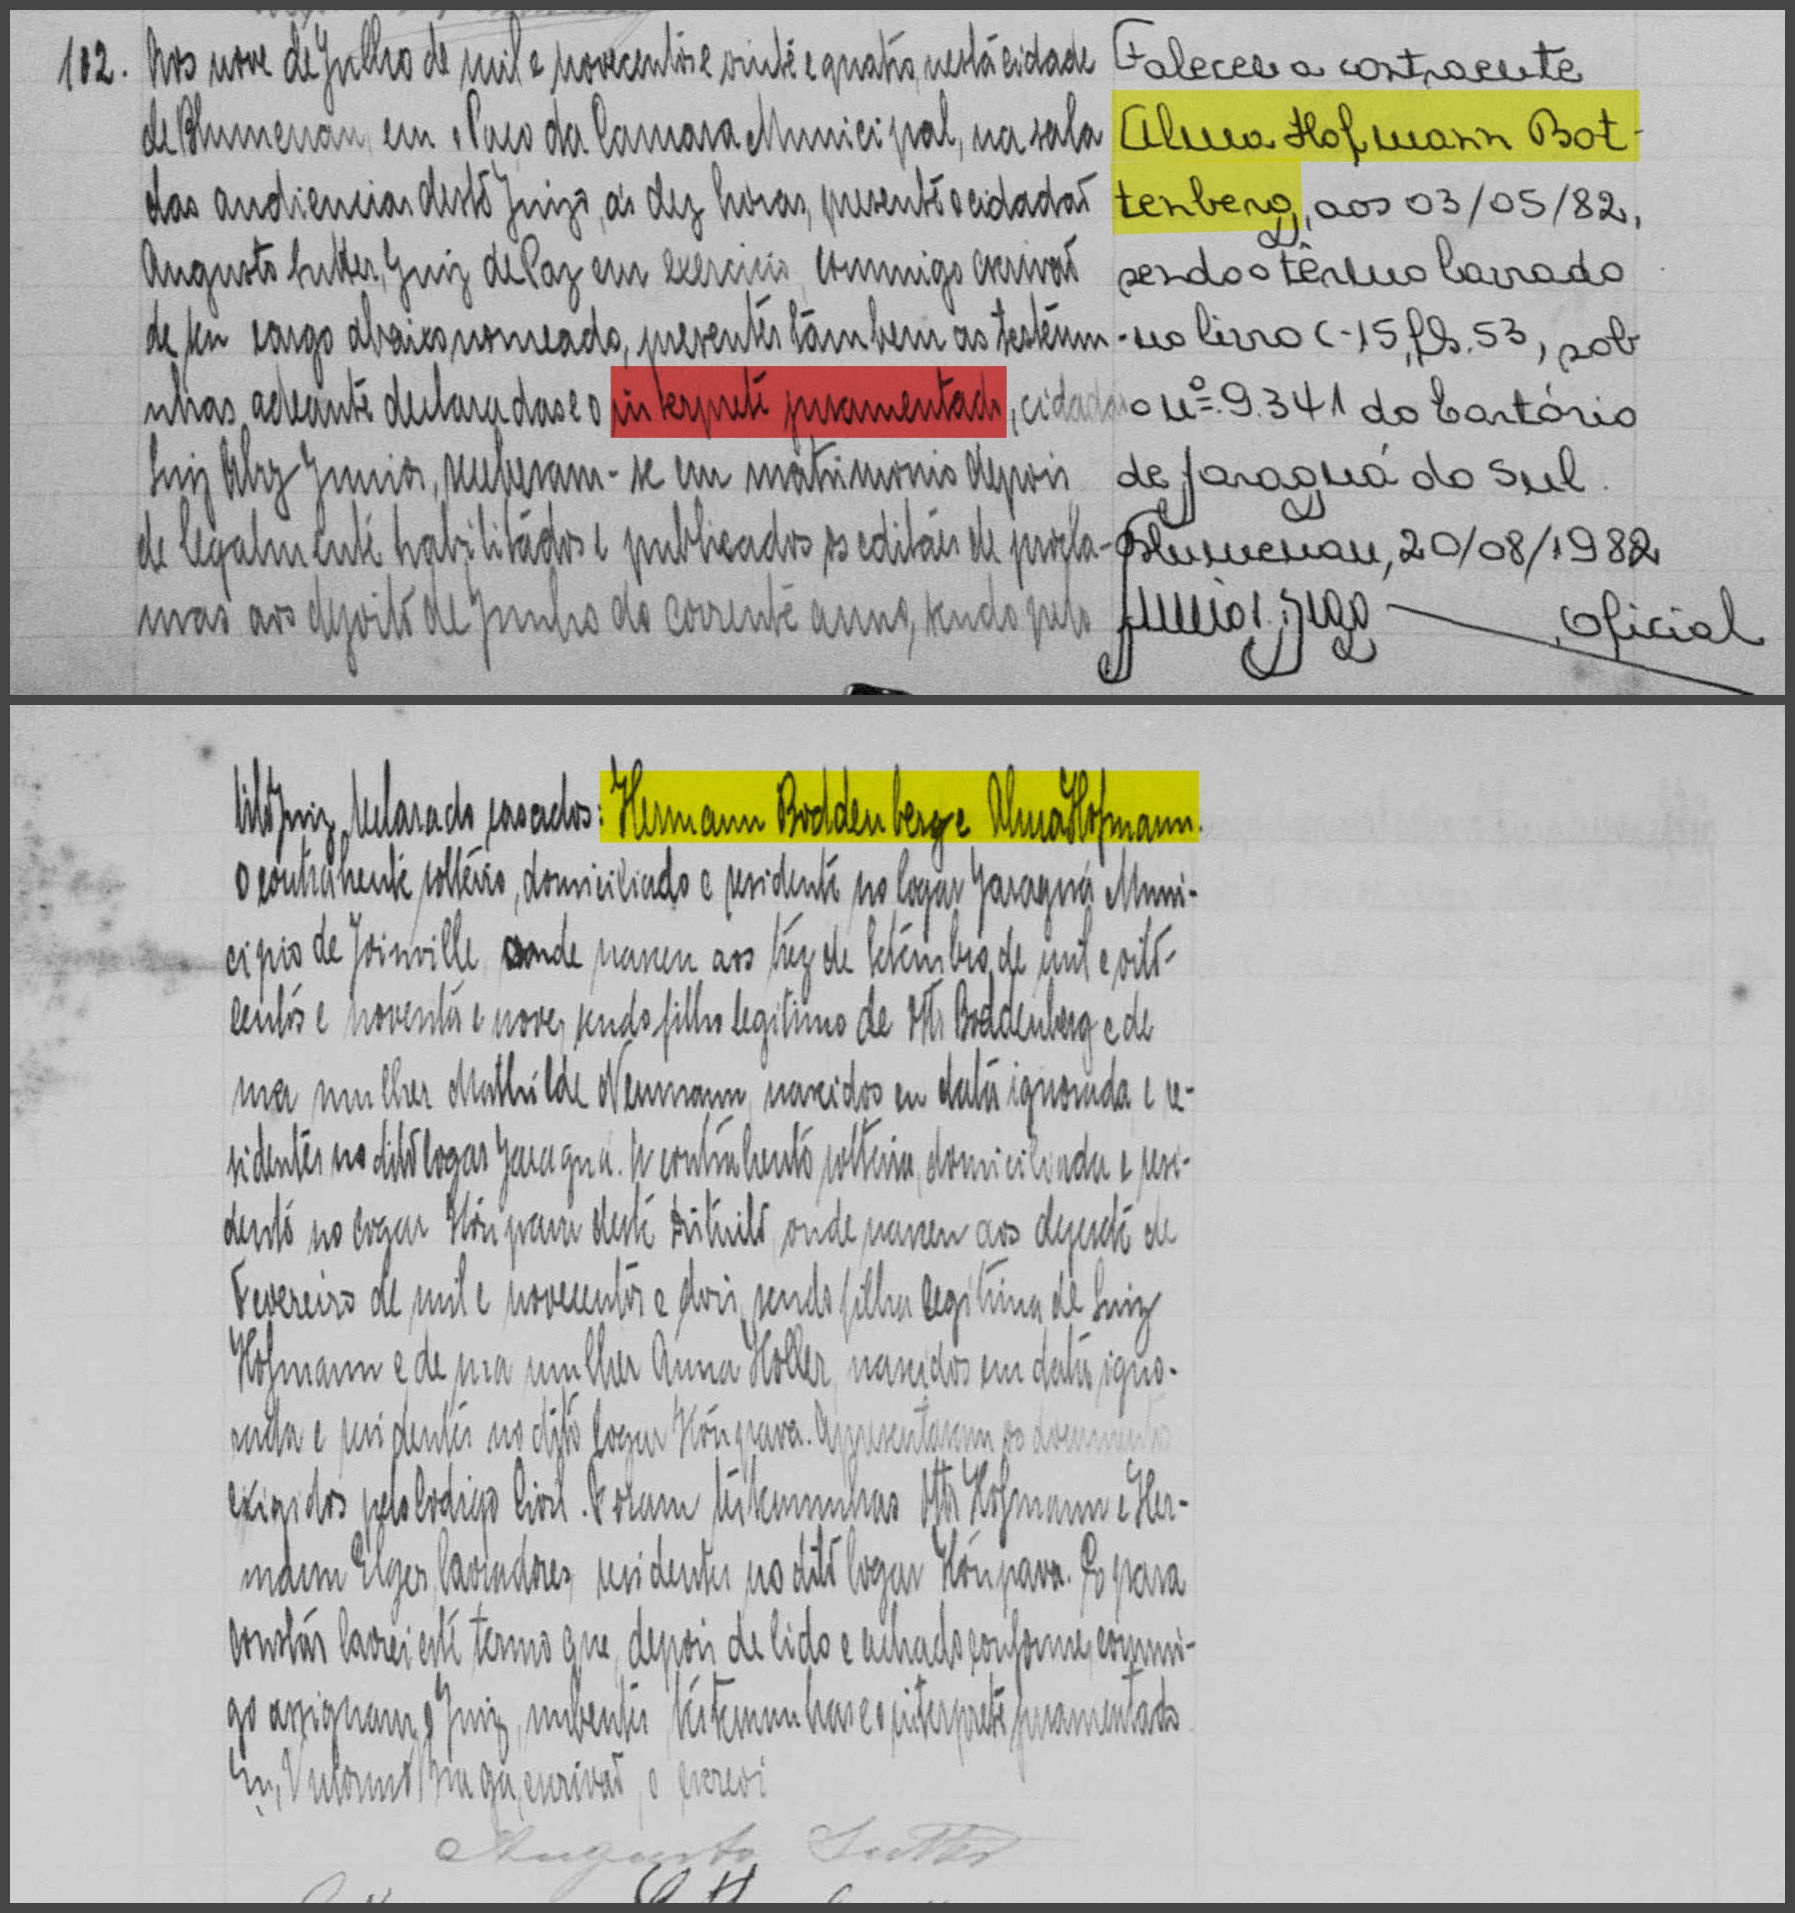 102. Aos nove de Julho de mil e novecentos e vinte e quatro, nesta cidade
de Blumenau, em o Paço da Camara Municipal, na sala
das audiencias deste Juizo, ás dez horas, presente o cidadão
Augusto Sutter, Juiz de Paz em exercicio, commigo escrivão
de seu cargo abaixo nomeado, presentes tambem as testemu-
nhas adeante declaradas e o interprete juramentado, cidadão
Luiz Abry Junior, receberam-se em matrimonio depois
de legalmente habilitados e publicados os editáes de procla-
mas aos dezoito de Junho do corrente anno, sendo pelo
Faleceu a contraente
Alma Hofmann Bot-
tenberg, aos 03/05/82,
sendo o têrmo lavrado
no livro C-15, fls. 53, sob
o nº 9.341 do Cartório
de Jaraguá do Sul.
Blumenau, 20/08/1982
Oficial
dito Juiz declarado casados: Hermann Boddenberg e Alma Hofmann.
O contrahente solteiro, domiciliado e residente no logar Jaraguá Muni-
cipio de Joinville onde nasceu aos trez de Setembro de mil e oito-
centos e noventa e nove, sendo filho legitimo de Otto Boddenberg e de
sua mulher Mathilde Neumann, nascidos em data ignorada e re-
sidentes no dito logar Jaraguá. A contrahente solteira, domiciliada e resi-
dente no logar Itoupava deste districto onde nasceu aos dezesete de
Fevereiro de mil e novecentos e dois, sendo filha legitima de Luiz
Hofmann e de sua mulher Anna Holler, nascidos em data igno-
rada e residentes no dito logar Itoupava. Apresentaram os documentos
exigidos pelo Codigo Civil. Foram testemunhas Otto Hofmann e Her-
mann Elger, lavradores, residentes no dito logar Itoupava. E para
constar lavrei este termo que, depois de lido e achado conforme, commi-
go assignam o Juiz, nubentes, testemunhas e o interprete juramentado
Eu, Victorino Braga, escrivão, o escrevi
Augusto Sutter